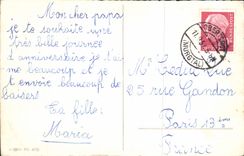 Mon cher papa
je te souhaite une
très belle journée
d'anniversaire je t'ai-
me beaucoup et je
t'envoie beaucoup de
baisers
Ta fille:
Maria
M. Cedric Rue
25 rue Gandon
Paris 13ème
France